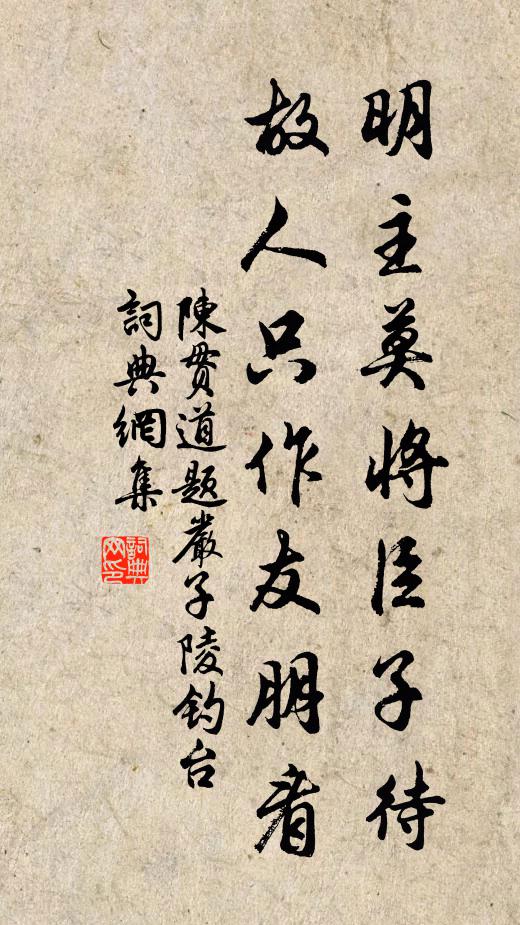 明主莫將臣子待
故人只作友朋看
陳貫道題嚴子陵釣台
詞典網集
詞典網印